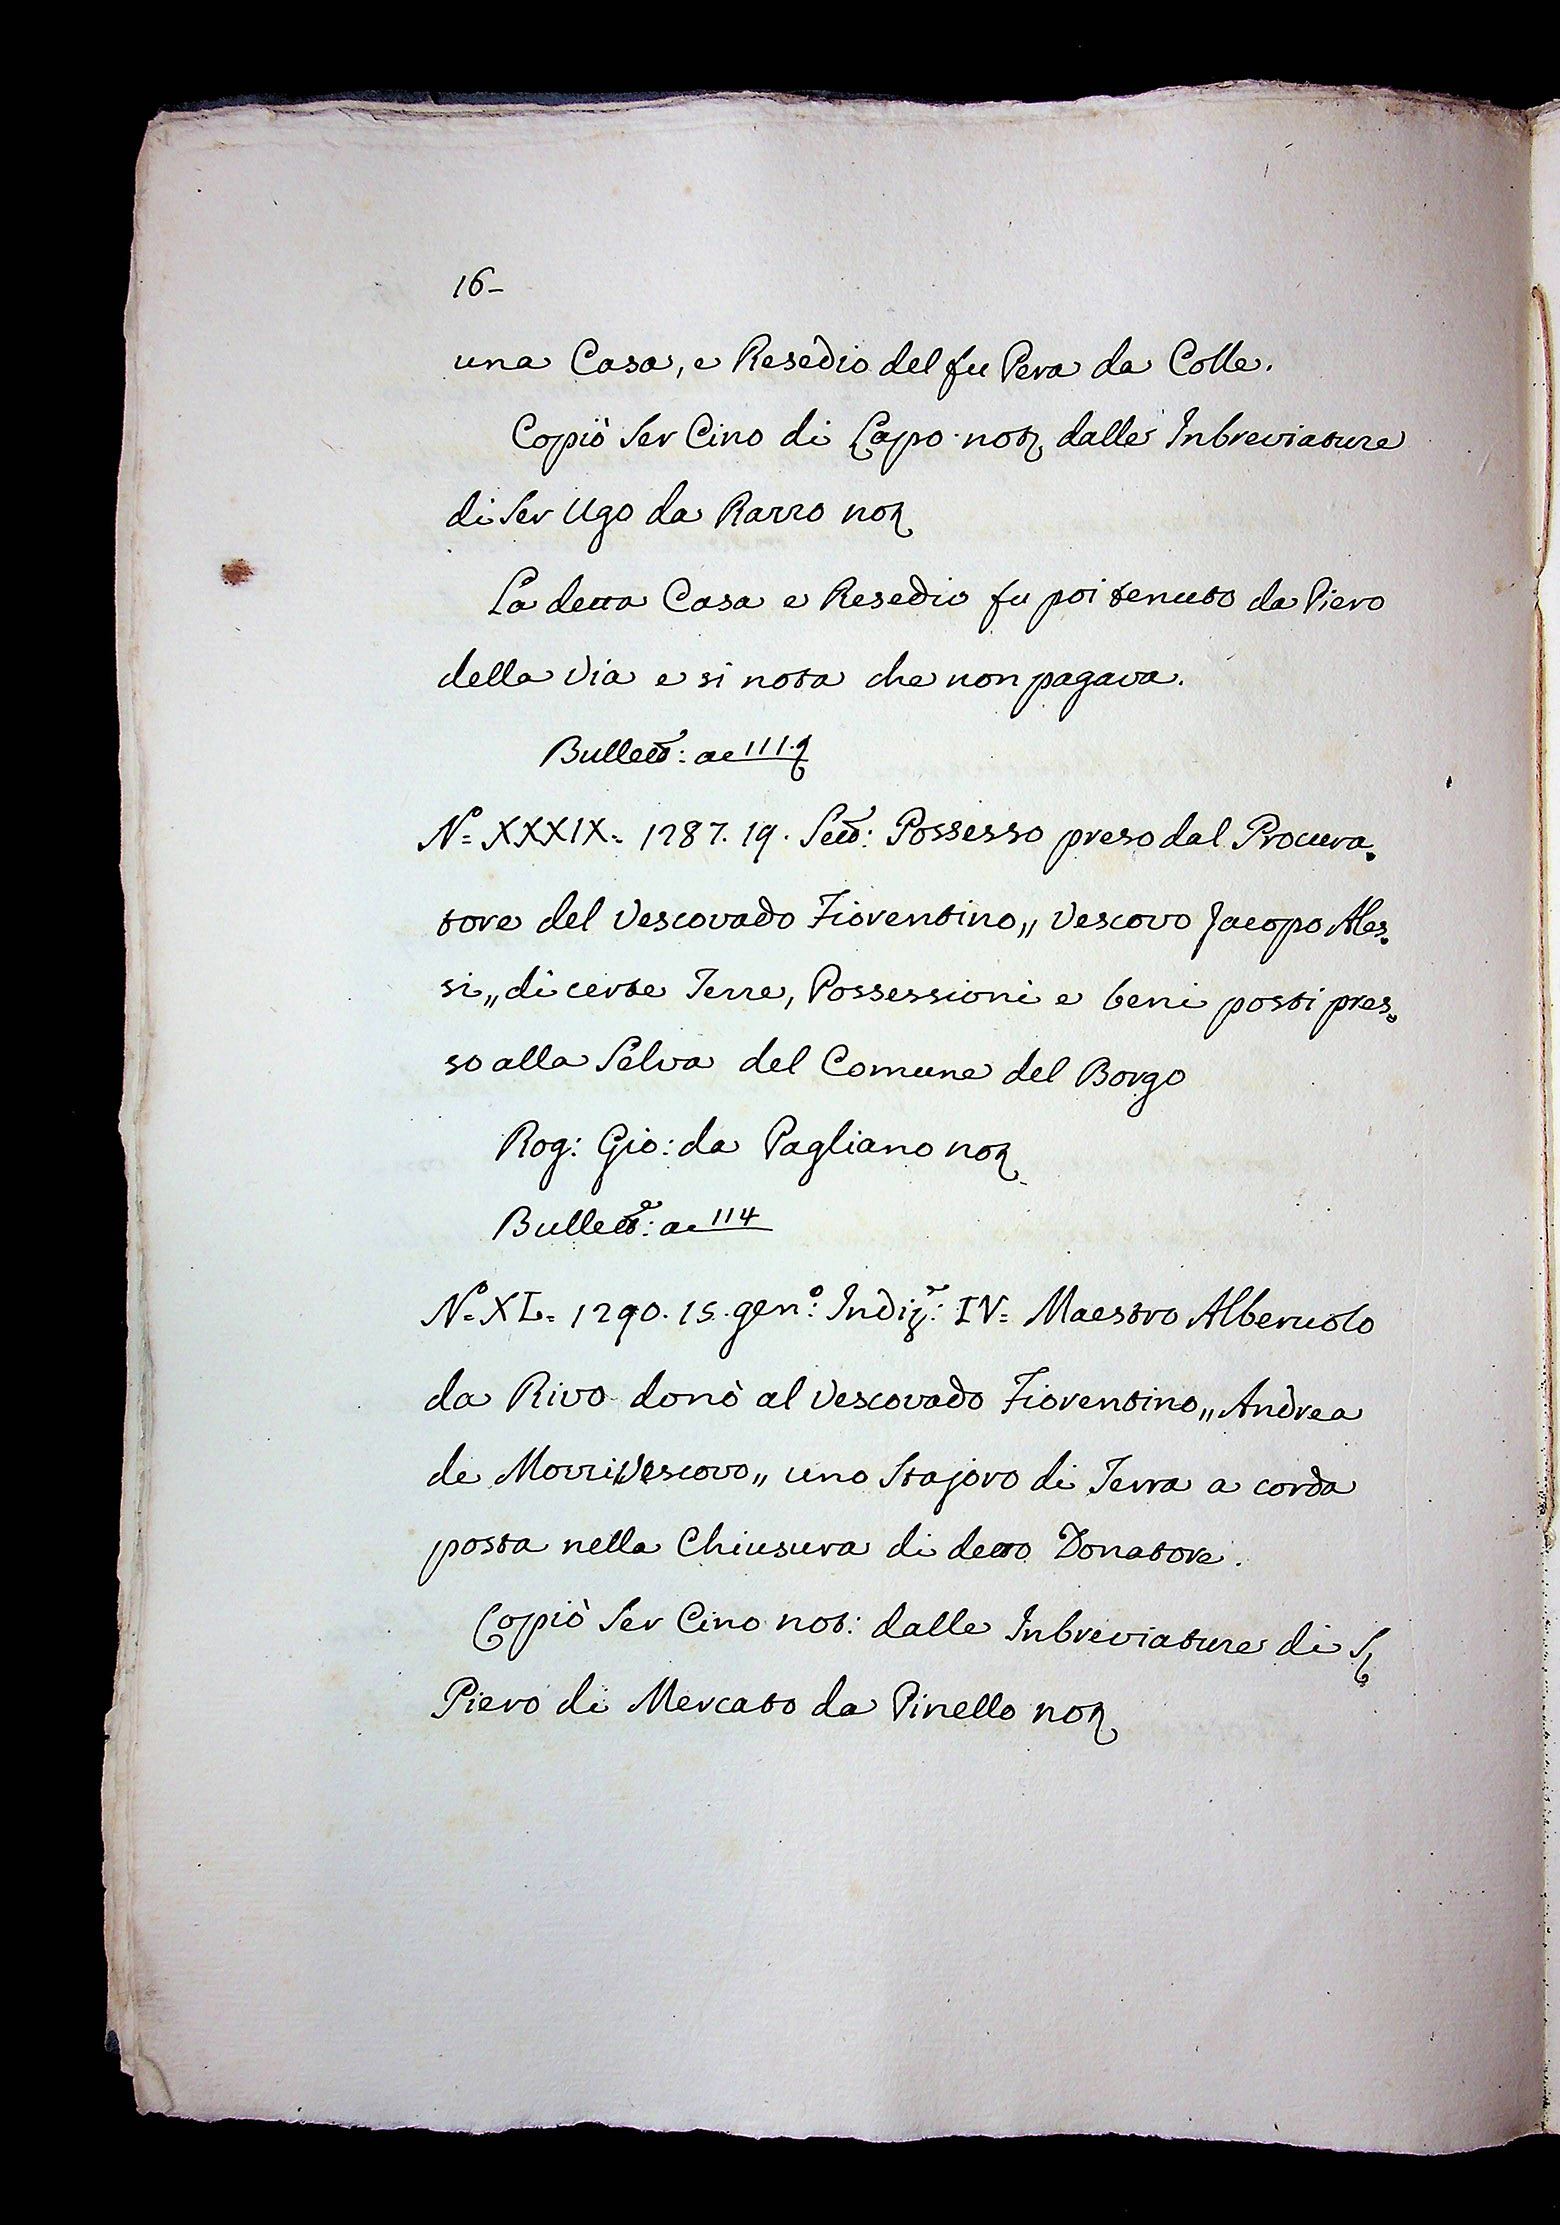 16-
una Casa, e Resedio del fu Pera da Colle.
Copiò Ser Cino di Lapo not dalle Inbreviature
di Ser Ugo da Razzo not
La detta Casa e Resedio fu poi tenuto da Piero
della Via e si nota che non pagava.
Bullett: a 111.
N.° XXXIX. 1287. 19. Sett: Possesso preso dal Procura-
tore del Vescovado Fiorentino,, Vescovo Jacopo Ales-
si,, di certe Terre, Possessioni e beni posti pres-
so alla Selva del Comune del Borgo
Rog: Gio: da Pagliano not
Bullett: a 114
N.° XL. 1290. 15. gen°: Indiz: IV. Maestro Alberuolo
da Rivo donò al Vescovado Fiorentino,, Andrea
de Mozzi Vescovo,, uno Stajoro di Terra a corda
posta nella Chiusura di detto Donatore.
Copiò Ser Cino not: dalle Inbreviature di S
Piero di Mercato da Pinello not